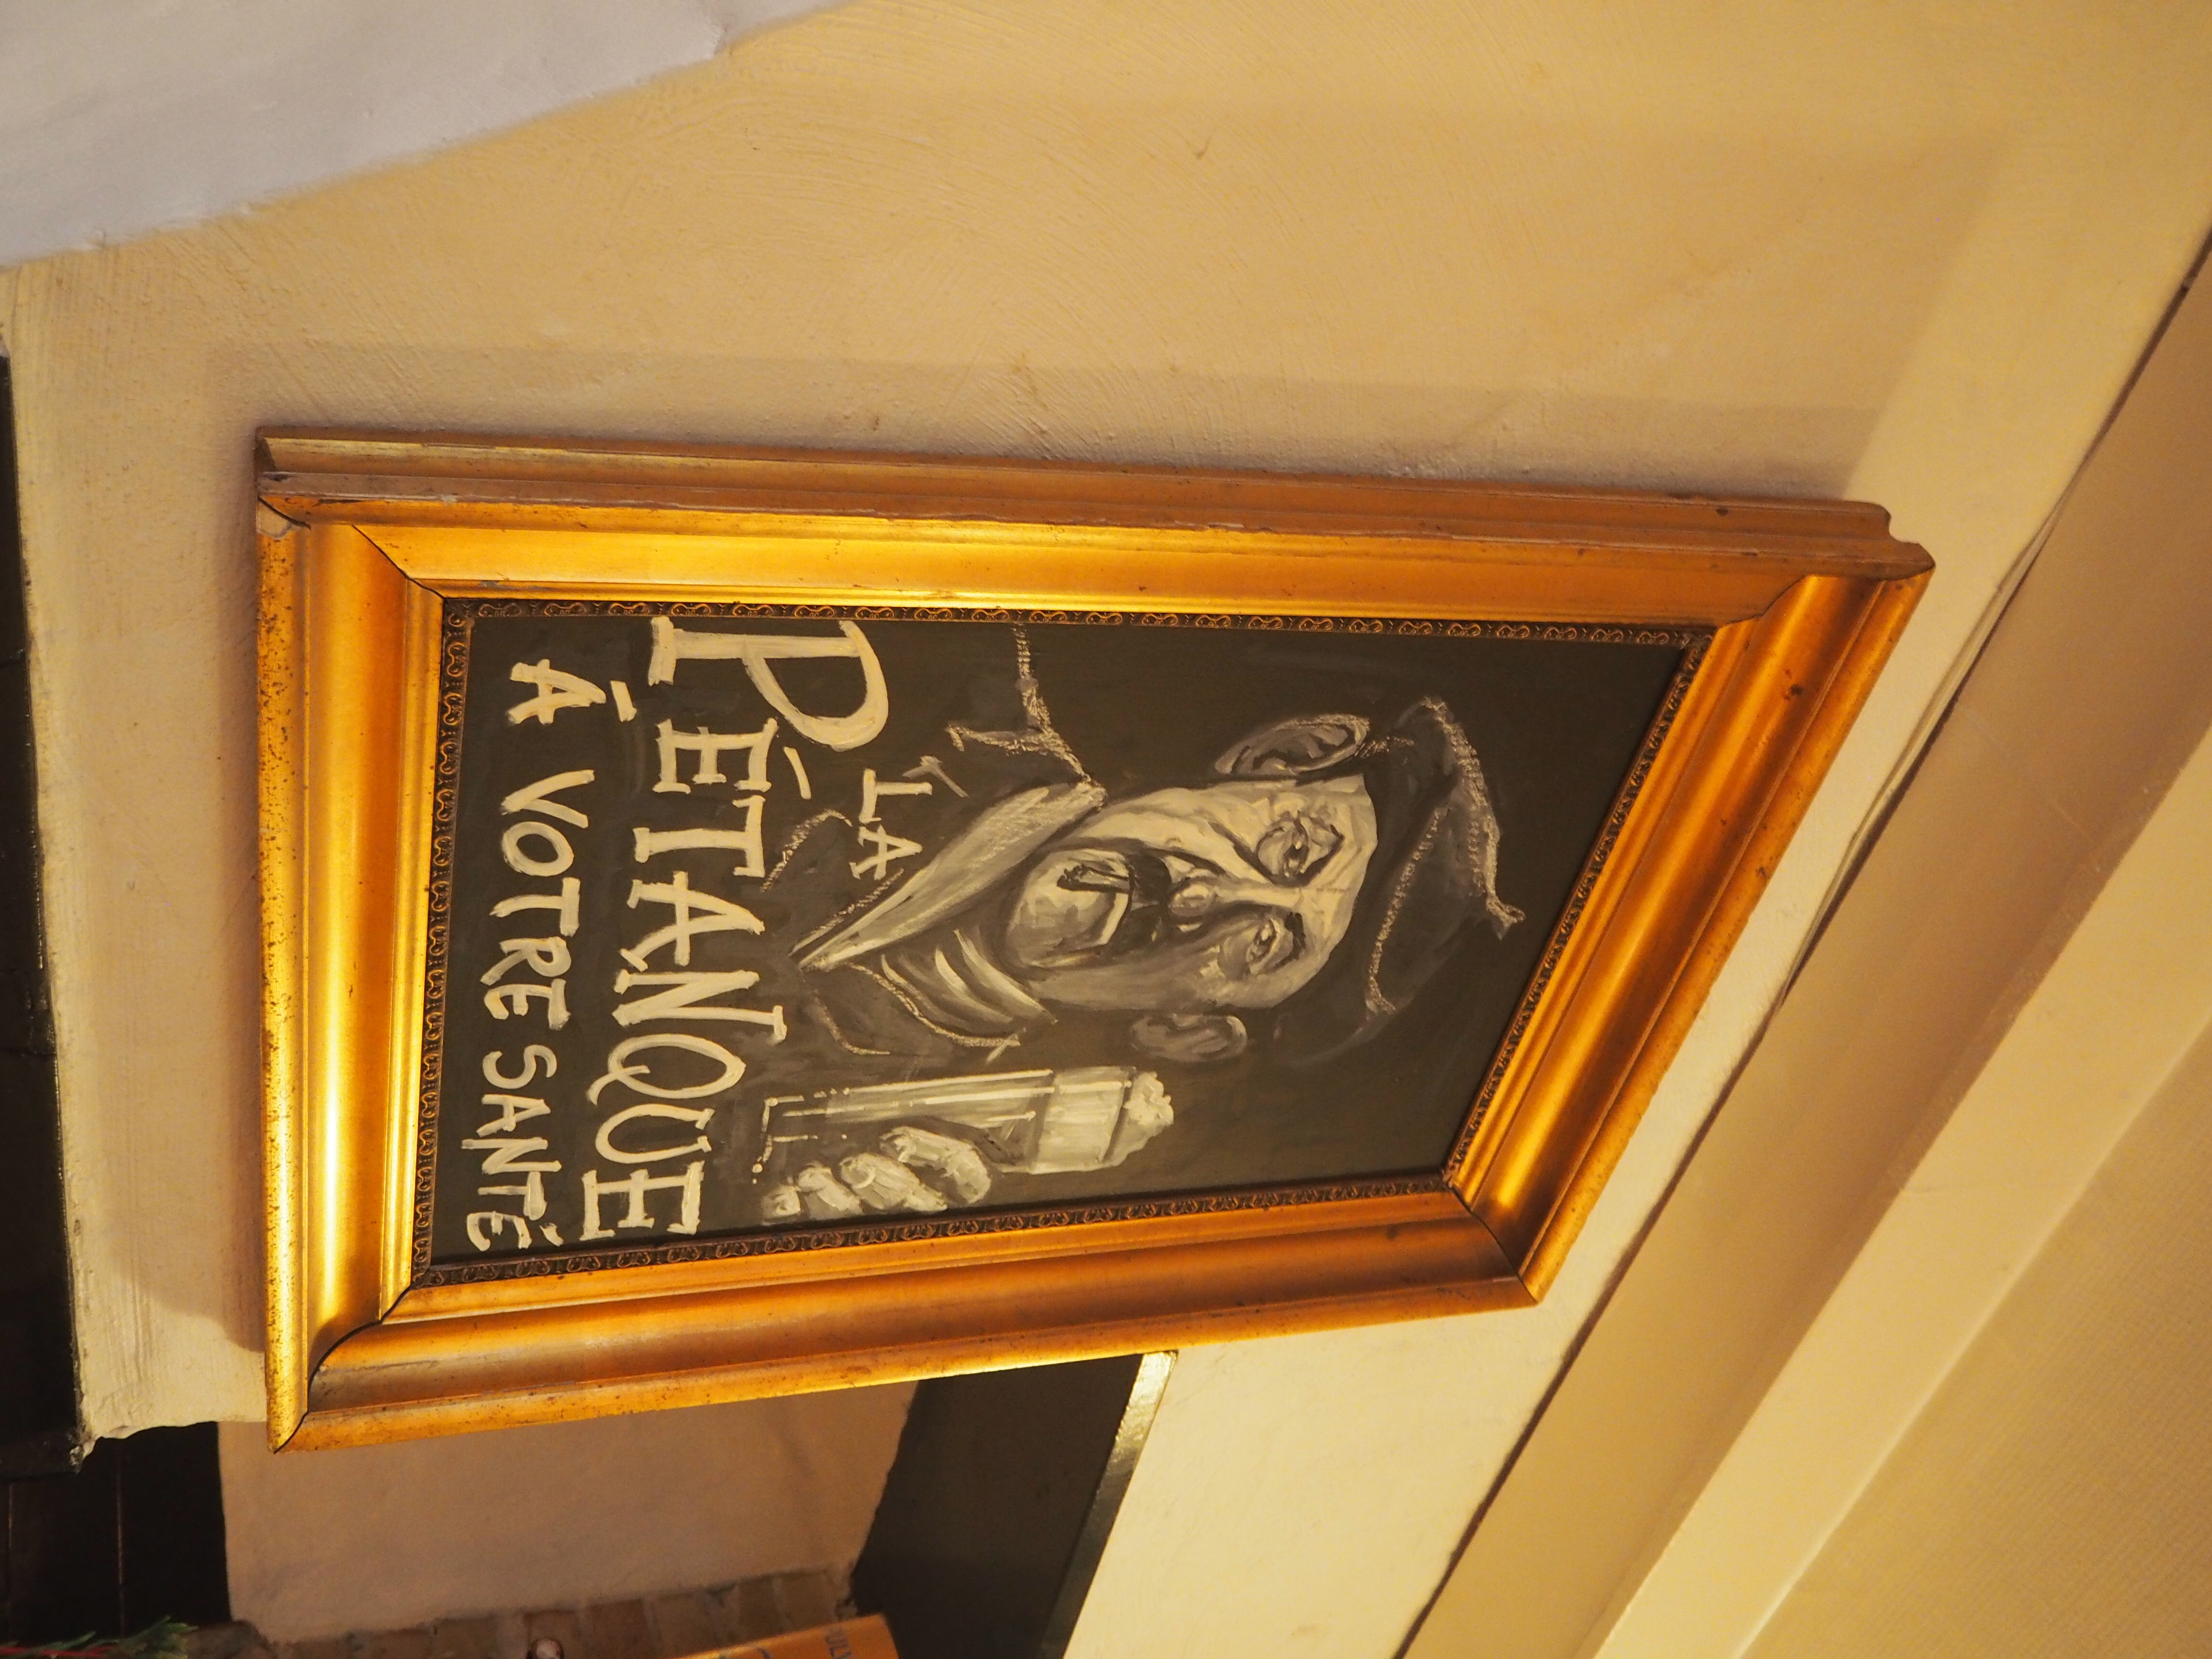 LA
PÉTANQUE
Á VOTRE SANTÉ